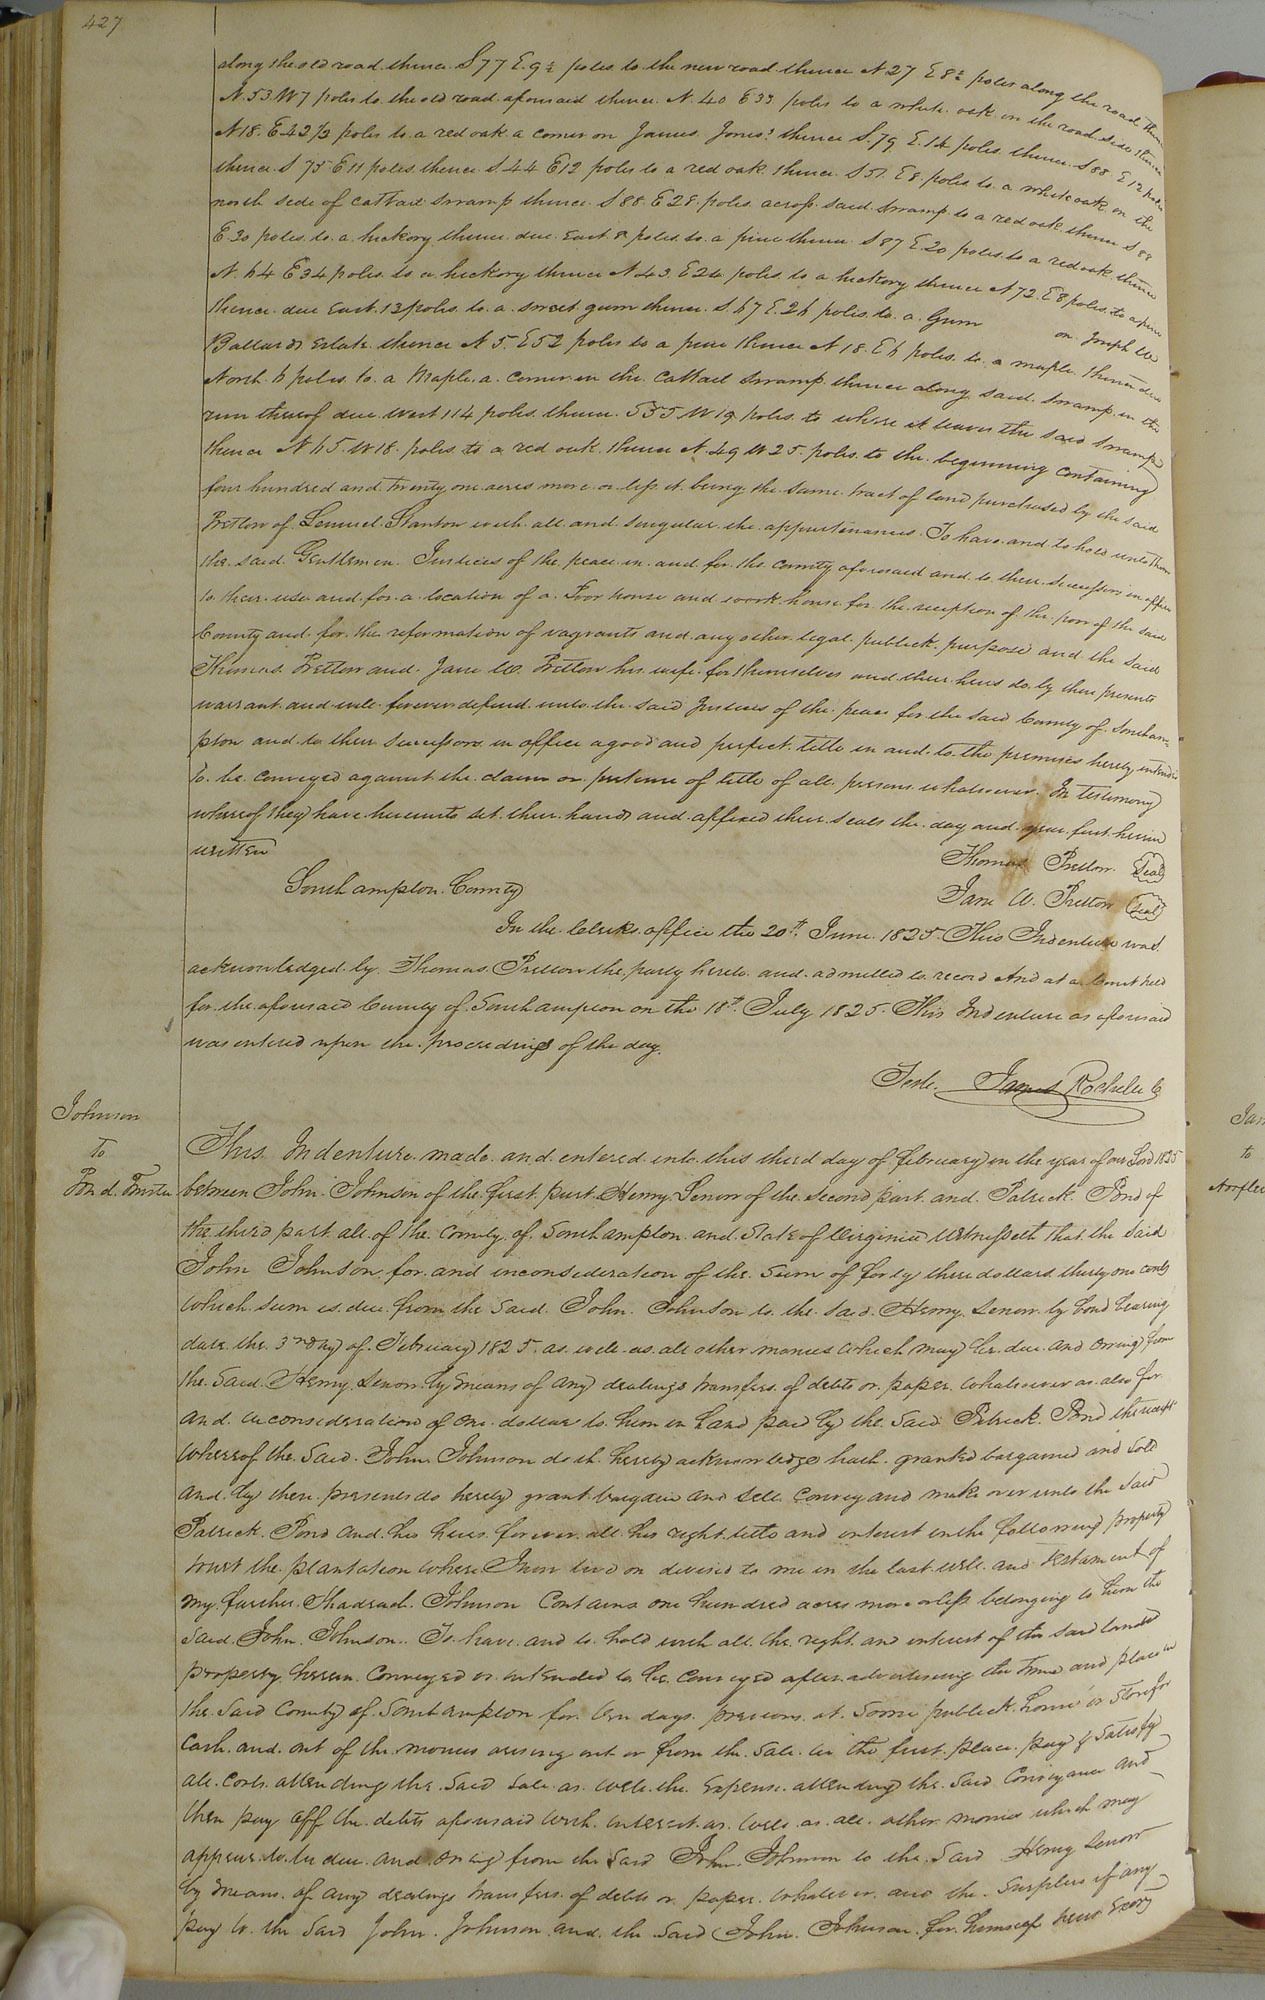 427
along the old road thence S 77 E 9½ poles to the new road thence N 27 E 8½ poles along the road thence
N. 53 W 7 poles to the old road aforesaid thence N. 40 E 33 poles to a white oak on the road side thence
N 18. E 42 1/2 poles to a red oak a corner on James Jones's thence S. 79 E. 14 poles thence S 88 E 12 poles
thence S 75 E 11 poles thence S. 44 E 12 poles to a red oak thence S 51. E 8 poles to a white oak on the
north side of cattail swamp thence S 88. E 28 poles across said swamp to a red oak thence S 83
E 30 poles to a hickory thence due East 8 poles to a pine thence S 87 E 20 poles to a red oak thence
N. 64 E 34 poles to a hickory thence N 43. E 24 poles to a hickory thence N 72. E 8 poles to a pine
thence due East 13 poles to a sweet gum thence S. 67 E. 26 poles to a Gum on Joseph W
Ballards Estate thence N 5. E 52 poles to a pine thence N 18. E 6 poles to a maple thence due
North 6 poles to a Maple a corner in the cattail swamp thence along said swamp in the
run thereof due West 114 poles thence S 35 W 19 poles to where it leaves the said swamp
thence N 65 W 18 poles to a red oak thence N. 49 W 25 poles to the beginning containing
four hundred and twenty one acres more or less it being the same tract of land purchased by the said
Pretlow of Lemuel Stanton with all and singular the appurtenances To have and to hold unto them
the said Gentlemen Justices of the peace in and for the county aforesaid and to their successors in office
to their use and for a location of a Poor house and work house for the reception of the poor of the said
County and for the reformation of vagrants and any other legal publick purpose and the said
Thomas Pretlow and Jane W. Pretlow his wife for themselves and their heirs do by these presents
warrant and will forever defend unto the said Justices of the peace for the said County of Southam=
pton and to their successors in office a good and perfect title in and to the premises hereby intended
to be conveyed against the claim or pretense of title of all persons whatsoever. In testimony
whereof they have hereunto set their hands and affixed their seals the day and year first herein
written
Thomas Pretlow Seal
Southampton County
Jane W. Pretlow Seal
In the Clerks office the 20th June 1825 This Indenture was
acknowledged by Thomas Pretlow the party hereto and admitted to record And at a Court held
for the aforesaid County of Southampton on the 18th July 1825 This Indenture as aforesaid
was entered upon the proceedings of the day.
Teste. James Rochelle C
Johnson
To
Pond Trustee
This Indenture made and entered into this third day of february in the year of our Lord 1825
between John Johnson of the first part Henry Lenow of the second part and Patrick Pond of
the third part all of the County of Southampton and State of Virginia Witnesseth that the said
John Johnson for and inconsideration of the sum of forty three dollars thirty one cents
which sum is due from the said John Johnson to the said Henry Lenow by bond bearing
date the 3rd day of February 1825 as well as all other monies which may be due and owing from
the said Henry Lenow by means of any dealings transfers of debts or paper whatsoever as also for
and in consideration of one dollar to him in hand paid by the said Patrick Pond the receipt
whereof the said John Johnson doth hereby acknowledge hath granted bargained and sold
and by these presents do hereby grant bargain and sell convey and make over unto the said
Patrick Pond and his heirs forever all his right title and interest in the following property
towit the plantation where I now live on devised to me in the last will and testament of
my father Shadrach Johnson Contains one hundred acres more or less belonging to him the
said John Johnson. To have and to hold with all the right and interest of the said landed
property herein conveyed or intended to be conveyed after advertising the time and place in
the said County of Southampton for ten days previous at some publick house or store for
Cash and out of the monies arising out or from the sale in the first place pay & satisfy
all costs attending the said sale as well the expense attending the said conveyance and
then pay off the debts aforesaid with interest as well as all other monies which may
appear to be due and owing from the said John Johnson to the said Henry Lenow
by means of any dealings transfers of debts or paper whatever and the surplus if any
pay to the said John Johnson and the said John Johnson for himself heirs Exors
to